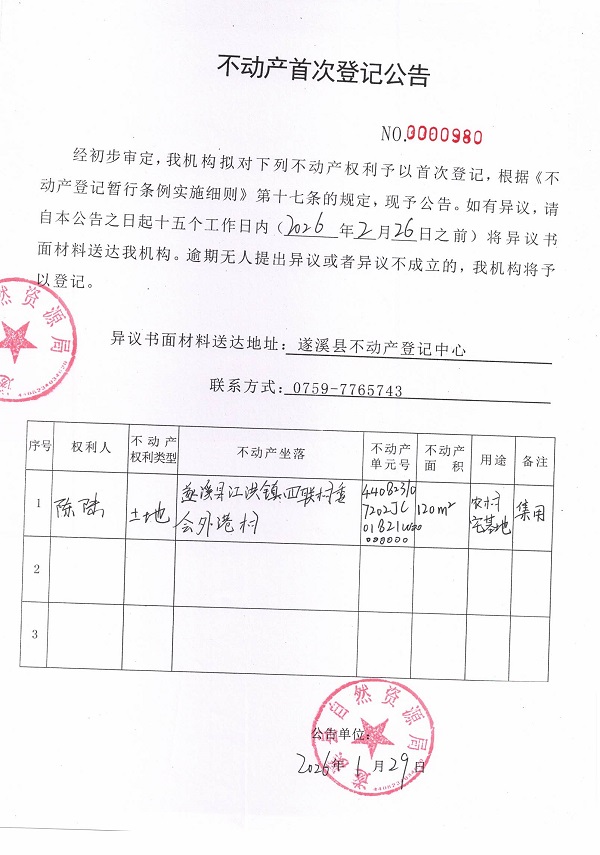 不动产首次登记公告
NO.0000980
经初步审定，我机构拟对下列不动产权利予以首次登记，根据《不
动产登记暂行条例实施细则》第十七条的规定，现予公告。如有异议，请
自本公告之日起十五个工作日内（2026年2月26日之前）将异议书
面材料送达我机构。逾期无人提出异议或者异议不成立的，我机构将予
以登记。
然资源局
遂
异议书面材料送达地址：遂溪县不动产登记中心
联系方式：0759-7765743
序号 权利人 不动产权利类型 不动产坐落 不动产单元号 不动产面积 用途 备注
1 陈陆 土地 遂溪县江洪镇四联村委会外港村 440823107202JC01821W00000000 120m² 农村宅基地 集用
2
3
遂溪县自然资源局
公告单位：
2026年1月29日